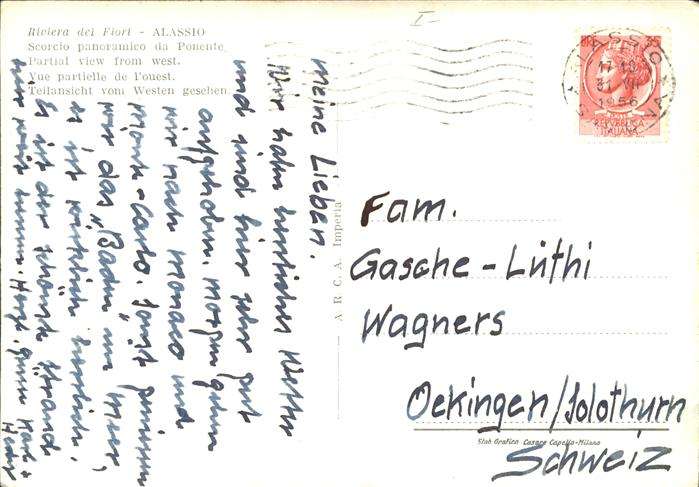 Riviera dei Fiori - ALASSIO
Scorcio panoramico da Ponente.
Partial view from west.
Vue partielle de l'ouest.
Teilansicht vom Westen gesehen.
meine Lieben.
Wir haben herrliches Wetter
und sind hier sehr gut
aufgehoben. morgen gehen
wir nach monaco und
monte-Carlo. Sonst geniessen
wir das "Baden im meer,
es ist wirklich herrlich.
Es ist der schönste Strand
A.R.C.A. Imperia
ALASSIO
17-18
1956
REPVBBLICA
ITALIANA
Fam.
Gasche-Lüthi
Wagners
Oekingen/Solothurn
Schweiz
Stab Grafico Cesare Capello-Milano